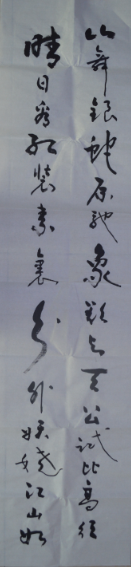 山舞銀蛇原驰象欲与天公试比高须
晴日看红裝素裹分外妖娆江山如